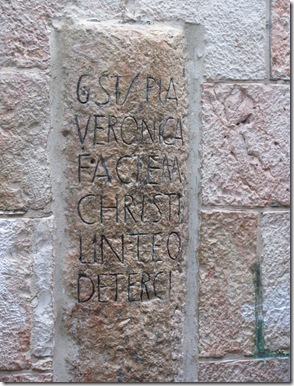 6 ST/ PIA
VERONICA
FACIEM
CHRISTI
LINTEO
DETERCI